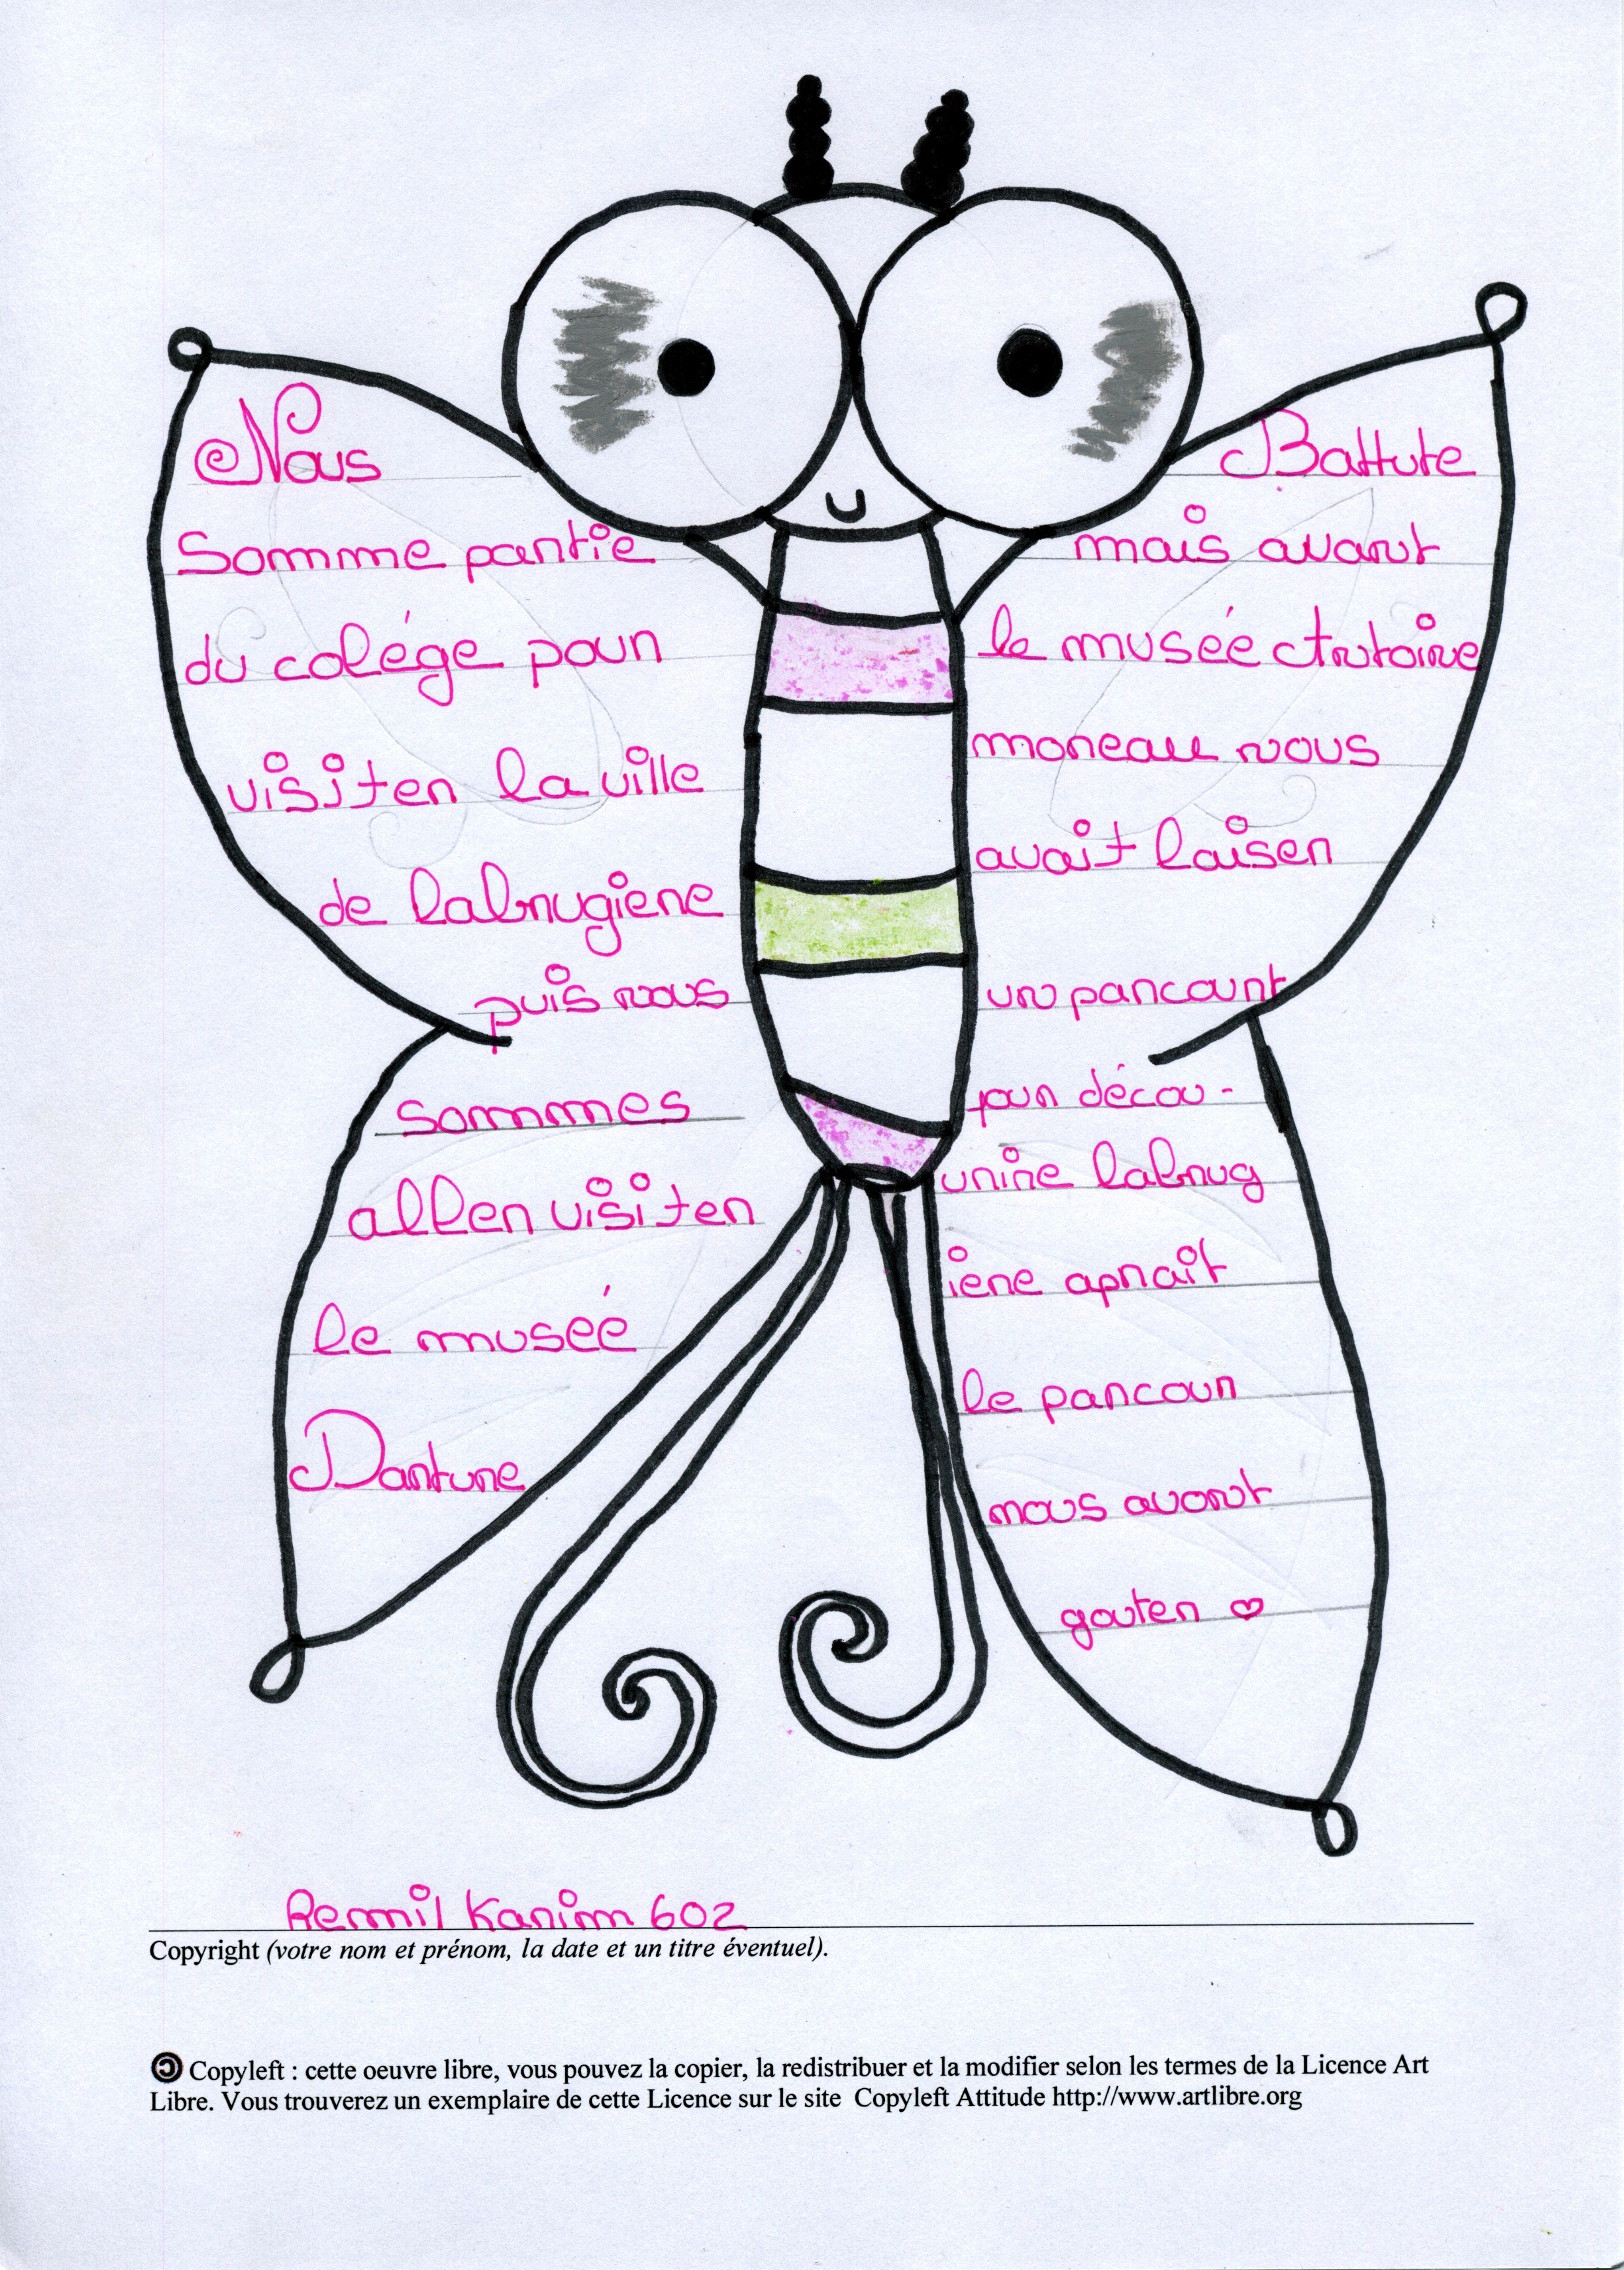 Nous
Somme partie
du colége pour
visiter la ville
de labrugiere
puis nous
sommes
aller visiter
le musée
Darture
Battute
mais avant
le musée Antoine
moreau nous
avait laiser
un parcourt
pour décou-
vrire labrug
iere aprait
le parcour
nous avont
gouter ♡
Remil Karim 602
Copyright (votre nom et prénom, la date et un titre éventuel).
Copyleft : cette oeuvre libre, vous pouvez la copier, la redistribuer et la modifier selon les termes de la Licence Art
Libre. Vous trouverez un exemplaire de cette Licence sur le site Copyleft Attitude http://www.artlibre.org